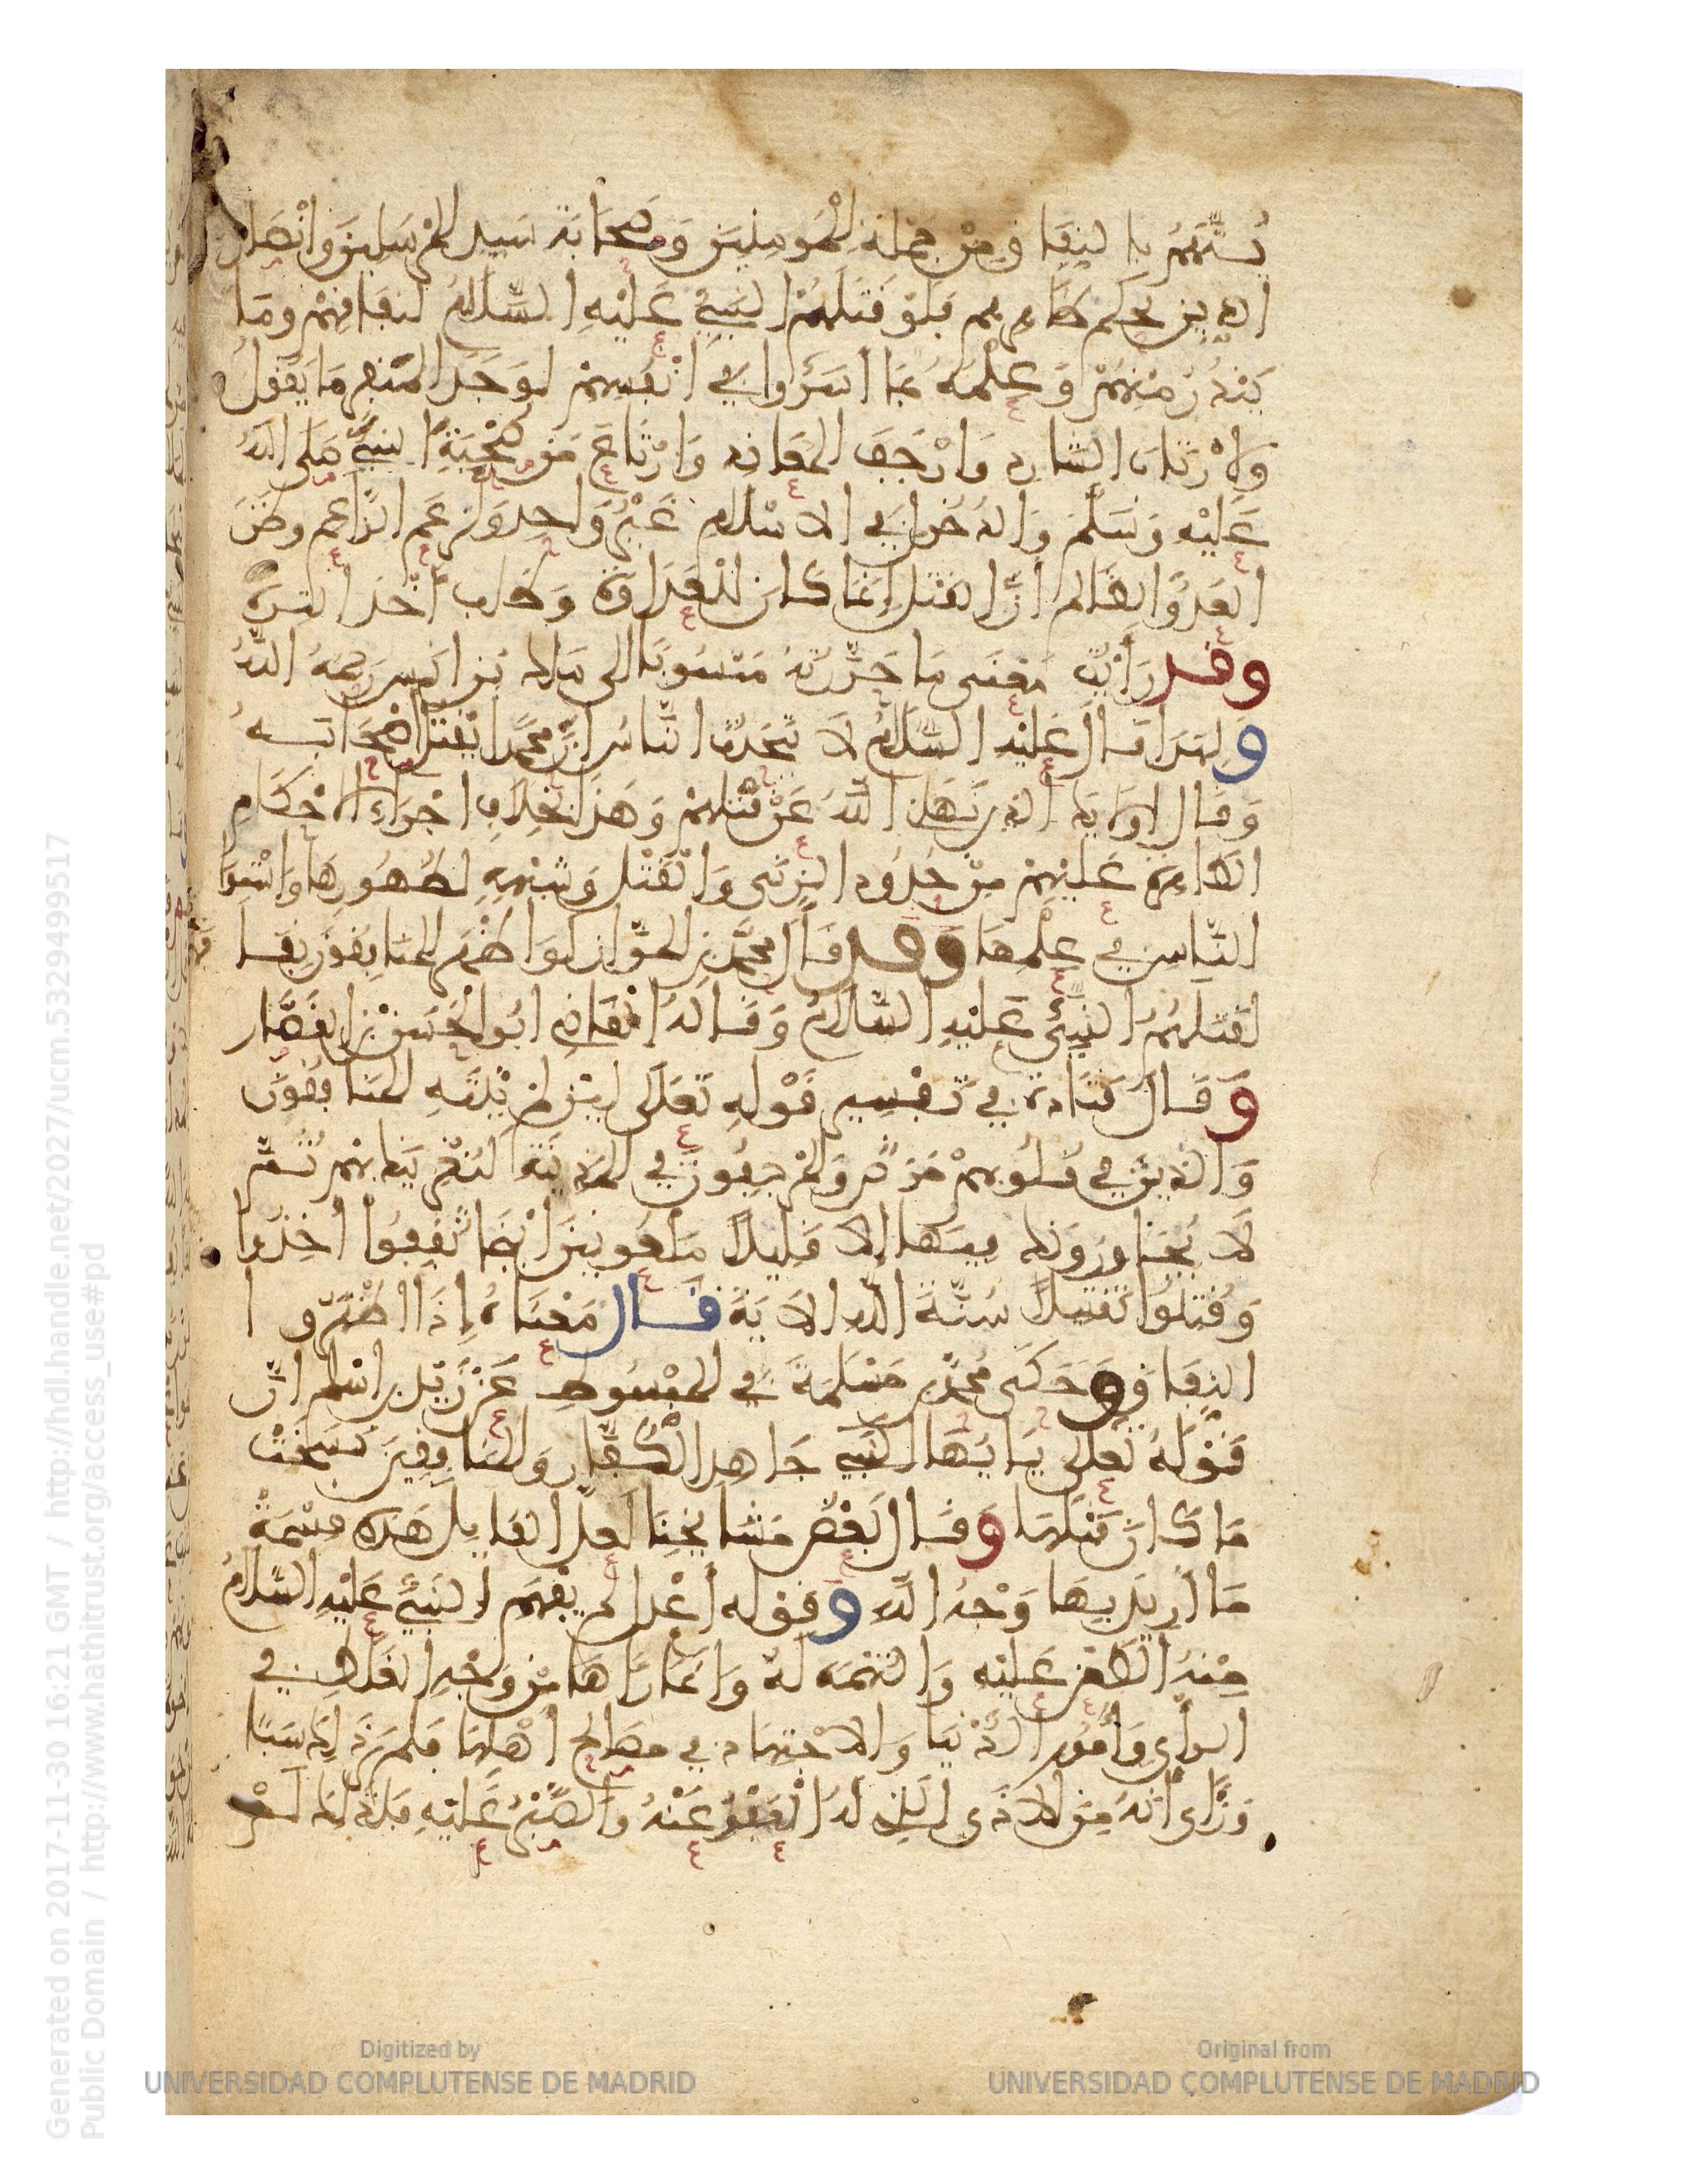 يُستَّهَمُ بالنفاق مِنْ جملة المومنين وَصَحَابَة سيد المرسلين وانصار
الدين بحكم ظاهرهم فلوْ قتلهمُ النبيُّ عَليْهِ السَّلامُ لنفاقهمْ ومَا
يَبْدُرُ مِنهُمْ وَعِلْمُهُ بما أسَرُّوا في أنْفُسِهمْ لوَجَدَ المُنفر مَا يَقول
وَلارْتَابَ الشارد وَارْجَفَ المعَاند وَارْتَاعَ مَن صُحْبَةِ النبيِّ صَلى اللهُ
عَليْه وَسَلمَ وَالدُخول في الاسْلام غَيْرُ وَاحِد وَلزعَمَ الزاعم وظَنَّ
العَدُوُّ الظالم أنَّ القتل إنمَا كانَ للعَدَاوَة وَطلب أخْذ الترة
وقد رَأيْتُ مَعْنَى مَا حَرَّرْتُهُ مَنْسُوبًا الى مالك بْن انس رَحمَهُ اللهُ
وَلهَذا قال عَليْه السَّلامُ لا يَتَحَدَّثُ النَّاسُ انَّ محمَّدًا يَقتل اصْحَابَهُ
وَقال اولايك الذين نَهَانِي اللهُ عَنْ قَتْلهِمْ وَهَذا بخلافِ اجْرَاءِ الاحْكام
الظاهرة عَليْهِمْ مِنْ حُدُود الزنَى وَالقَتْل وَشِبْهِهِ لظهُورهَا وَاسْتِوَا
النَّاس في عِلْمِهَا وَقد قَالَ محمَّد بن المَوَّاز لوَ اظْهَرَ المنافِقُونَ نِفَا
لقَتلَهُمُ النبيُّ عَليْهِ السَّلامُ وَقالهُ القاضي ابُو الحسَن بْن القَصَّار
وَقال قتادة في تفسِير قوْلهِ تَعَلَى لَيِن لمْ يَنْتَهِ المنَافِقُونَ
وَالذينَ في قلوبِهمْ مَرَضٌ وَالمُرْجِفُونَ في المَدِينَة لنُغْرِيَنَّكَ بهِمْ ثُمَّ
لا يُجَاورُونَكَ فيهَا إلا قليلاً مَلعُونِينَ أيْنَمَا ثُقِفُوا أخِذُوا
وَقُتّلوا تقتيلاً سُنَّةَ الله الايَةَ قال مَعْنَاهُ إذَا اظْهَرُوا
النفاق وَحَكَى مُحمَّد بن مَسْلمَةَ في المبْسُوط عَنْ زَيْد بن اسْلم انَّ
قَوْلهُ تعَلى يَايُّهَا النَّبِيُّ جَاهِد الكُفَّارَ وَالمنَافِقِينَ نَسَخَتْ
مَا كانَ قَبْلهَا وَقال بَعْضُ مَشَايخِنَا لعَلَّ القايل هَذه قِسْمَةٌ
مَا أرِيدَ بهَا وَجْهُ الله وَقوْله اعْدِل لم يَفْهَم النبيُّ عَليْهِ السَّلامُ
مِنْهُ الطعْنَ عَليْه وَالتهَمَة لهُ وَانمَا رَآهَا مِنْ وَجْهِ الغَلط في
الرأي وَأمُور الدُّنْيَا وَالاجْتِهَاد في مَصَالح أهْلهَا فلمْ يَرَ ذَلكَ سَبًّا
وَرَأى أنَّهُ مِنَ الاذَى الذِي لهُ العَفْوُ عَنْهُ وَالصَّبْرُ عَليْهِ فلذَلكَ لمْ